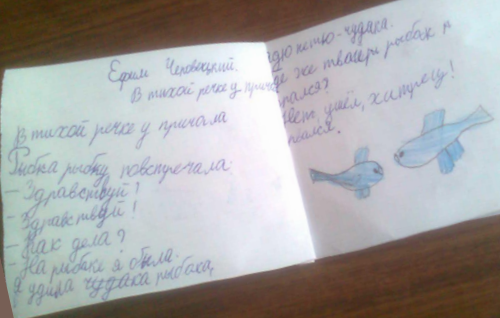 Ефим Чеповецкий.
В тихой речке у прича
В тихой речке у причала
Рыбка рыбку повстречала:
- Здравствуй!
- Здравствуй!
- Как дела?
- На рыбалке я была.
Я удила чудака рыбака,
дю петю-чудака.
де же твой рыбак
пался?
Нет, ушёл, хитрец!